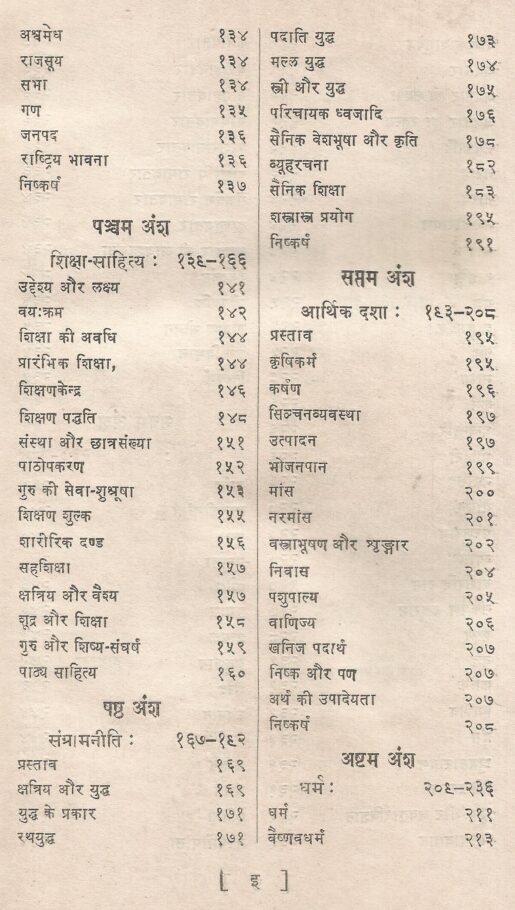 अश्वमेध १३४
राजसूय १३४
सभा १३४
गण १३५
जनपद १३६
राष्ट्रिय भावना १३६
निष्कर्ष १३७
पञ्चम अंश
शिक्षा-साहित्य : १३९–१६६
उद्देश्य और लक्ष्य १४१
वयःक्रम १४२
शिक्षा की अवधि १४४
प्रारंभिक शिक्षा, १४४
शिक्षणकेन्द्र १४६
शिक्षण पद्धति १४८
संस्था और छात्रसंख्या १५१
पाठोपकरण १५२
गुरु की सेवा-शुश्रूषा १५३
शिक्षण शुल्क १५५
शारीरिक दण्ड १५६
सहशिक्षा १५७
क्षत्रिय और वैश्य १५७
शूद्र और शिक्षा १५८
गुरु और शिष्य-संघर्ष १५९
पाठ्य साहित्य १६०
षष्ठ अंश
संग्रामनीति : १६७–१९२
प्रस्ताव १६९
क्षत्रिय और युद्ध १६९
युद्ध के प्रकार १७१
रथयुद्ध १७१
पदाति युद्ध १७३
मल्ल युद्ध १७४
स्त्री और युद्ध १७५
परिचायक ध्वजादि १७६
सैनिक वेशभूषा और कृति १७८
व्यूहरचना १८२
सैनिक शिक्षा १८३
शस्त्रास्त्र प्रयोग १९५
निष्कर्ष १९१
सप्तम अंश
आर्थिक दशा : १९३–२०८
प्रस्ताव १९५
कृषिकर्म १९५
कर्षण १९६
सिञ्चनव्यवस्था १९७
उत्पादन १९७
भोजनपान १९९
मांस २००
नरमांस २०१
वस्त्राभूषण और शृङ्गार २०२
निवास २०४
पशुपाल्य २०५
वाणिज्य २०६
खनिज पदार्थ २०७
निष्क और पण २०७
अर्थ की उपादेयता २०७
निष्कर्ष २०८
अष्टम अंश
धर्म : २०९–२३६
धर्म २११
वैष्णवधर्म २१३
[ इ ]